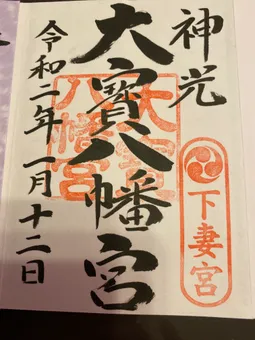 神光
下妻宮
大寳八幡宮
大宝八幡宮
令和二年一月十二日